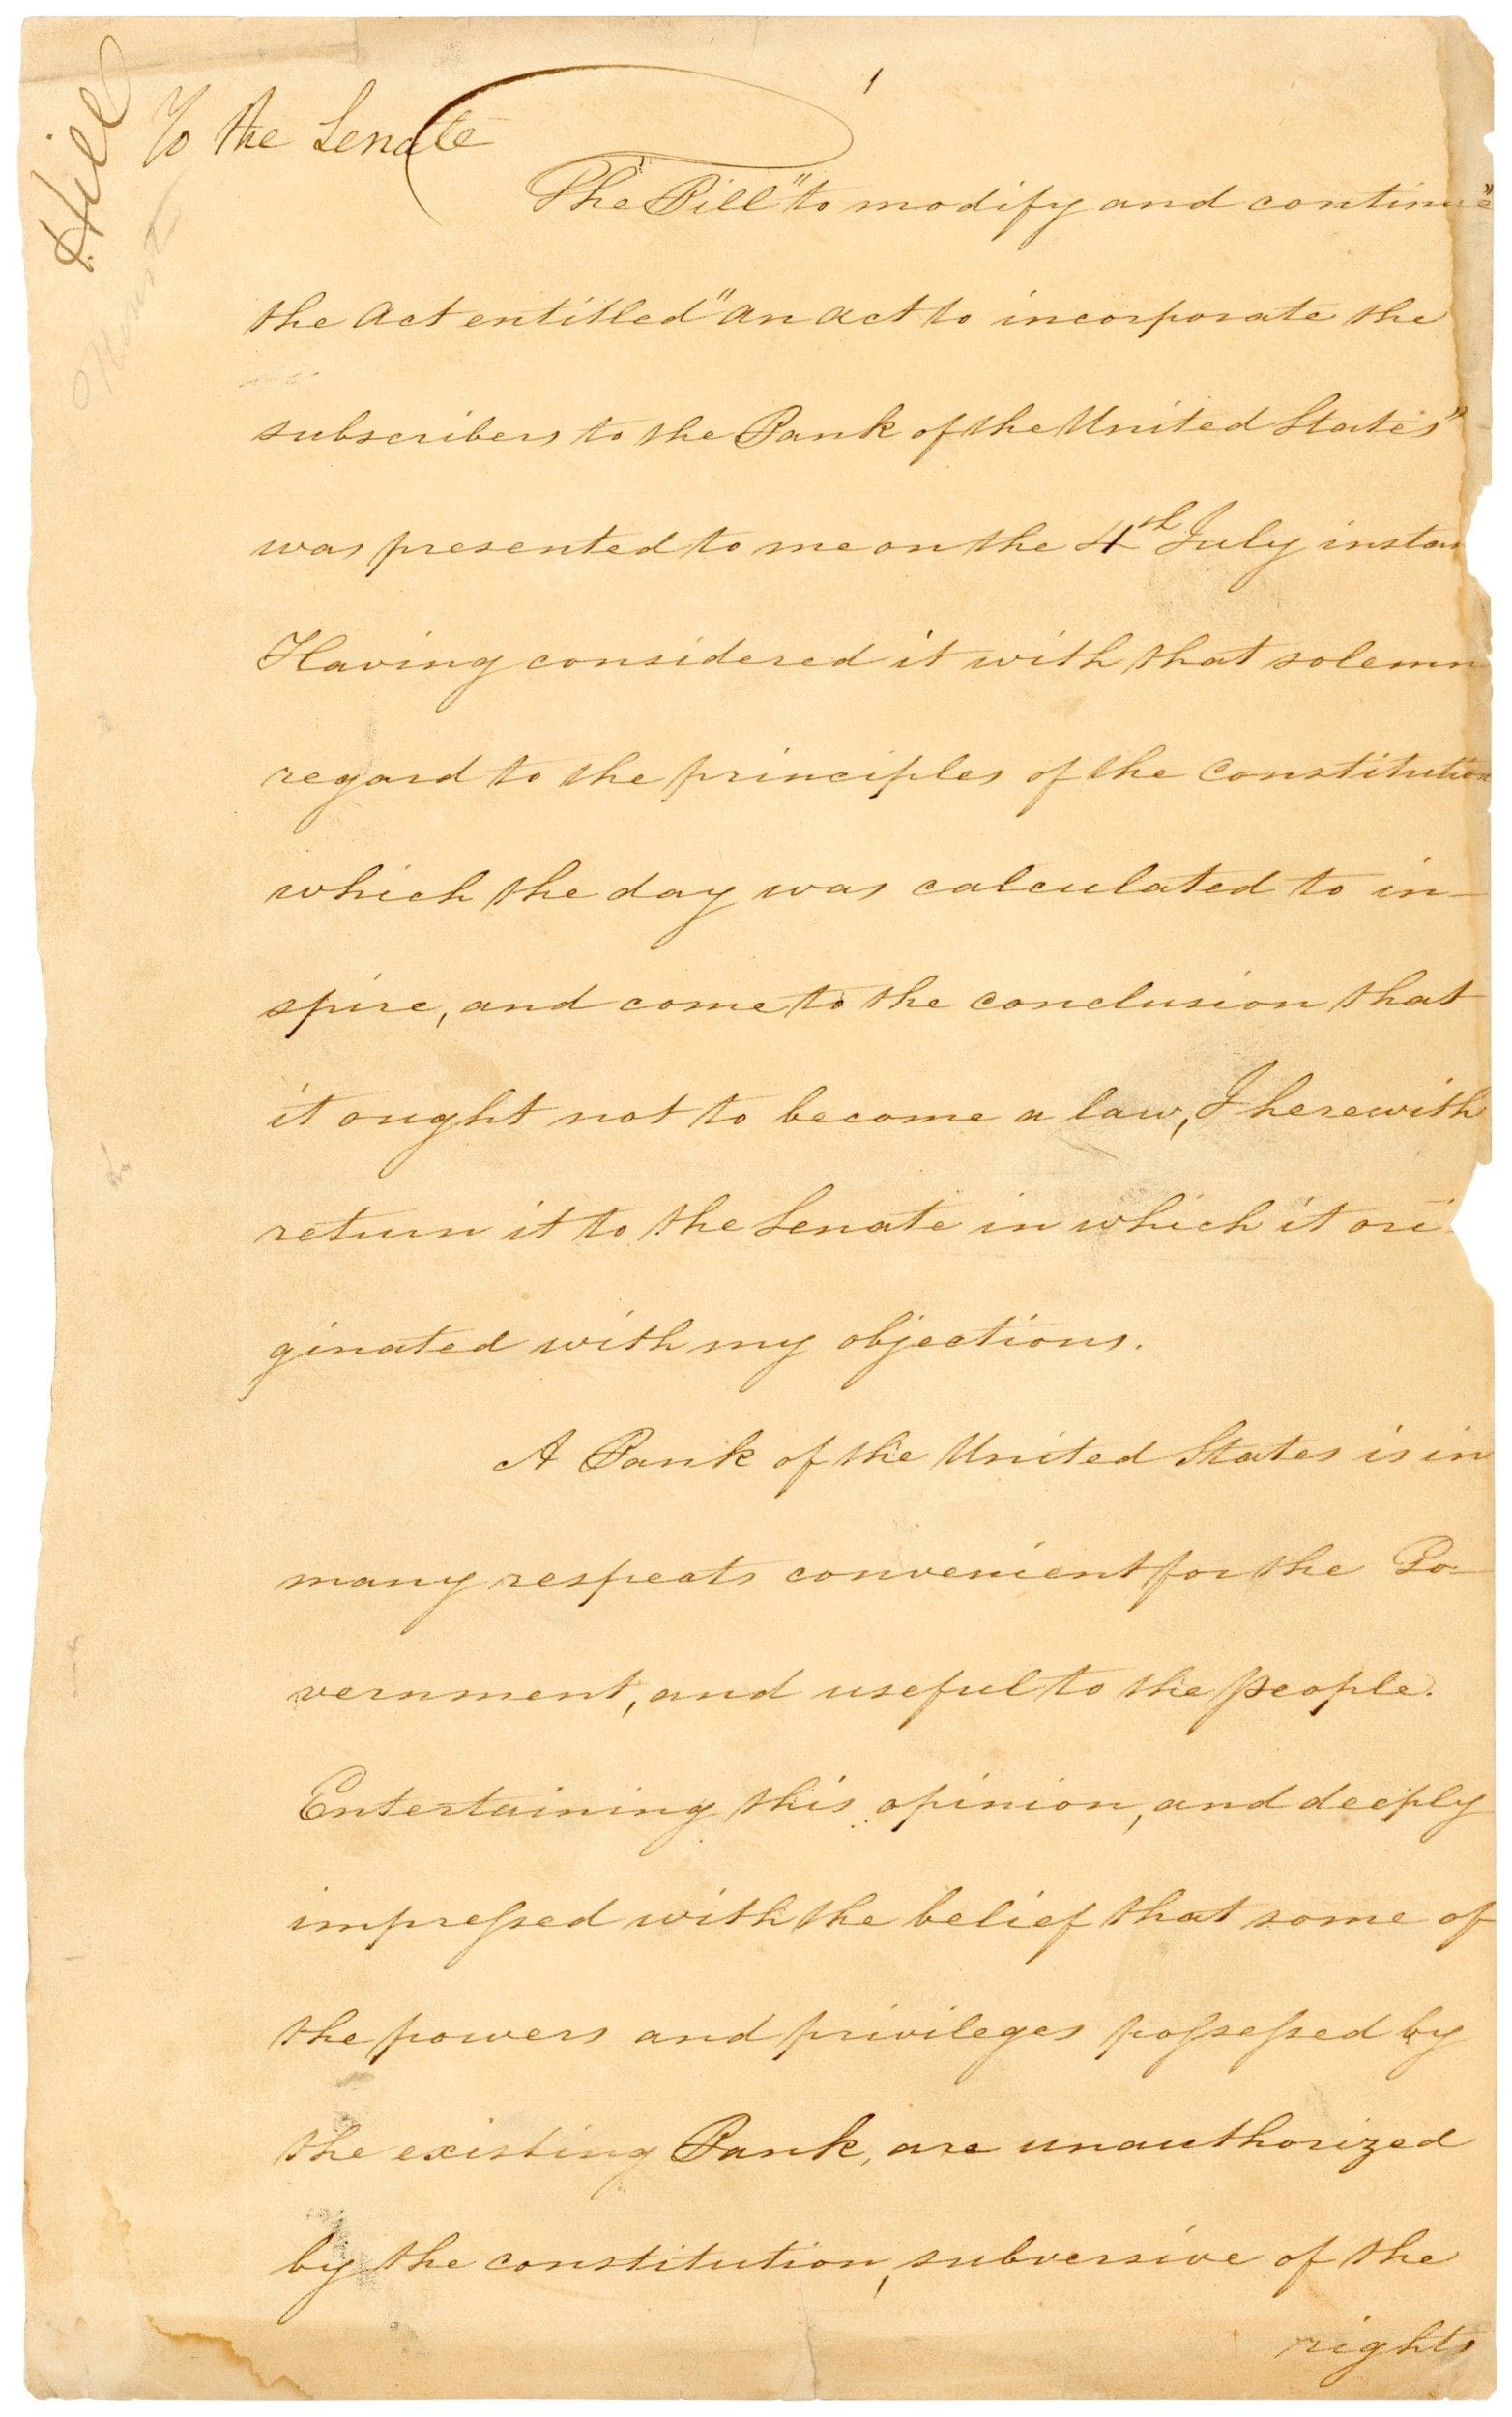 Hill
To the Senate
The Bill "to modify and continue"
the Act entitled "an act to incorporate the
subscribers to the Bank of the United States"
was presented to me on the 4th July instan
Having considered it with that solemn
regard to the principles of the constitution
which the day was calculated to in-
spire, and come to the conclusion that
it ought not to become a law, I herewith
return it to the Senate in which it ori-
ginated with my objections.
A Bank of the United States is in
many respects convenient for the Go-
vernment, and useful to the people.
Entertaining this opinion, and deeply
impressed with the belief that some of
the powers and privileges possessed by
the existing Bank, are unauthorized
by the constitution, subversive of the
rights